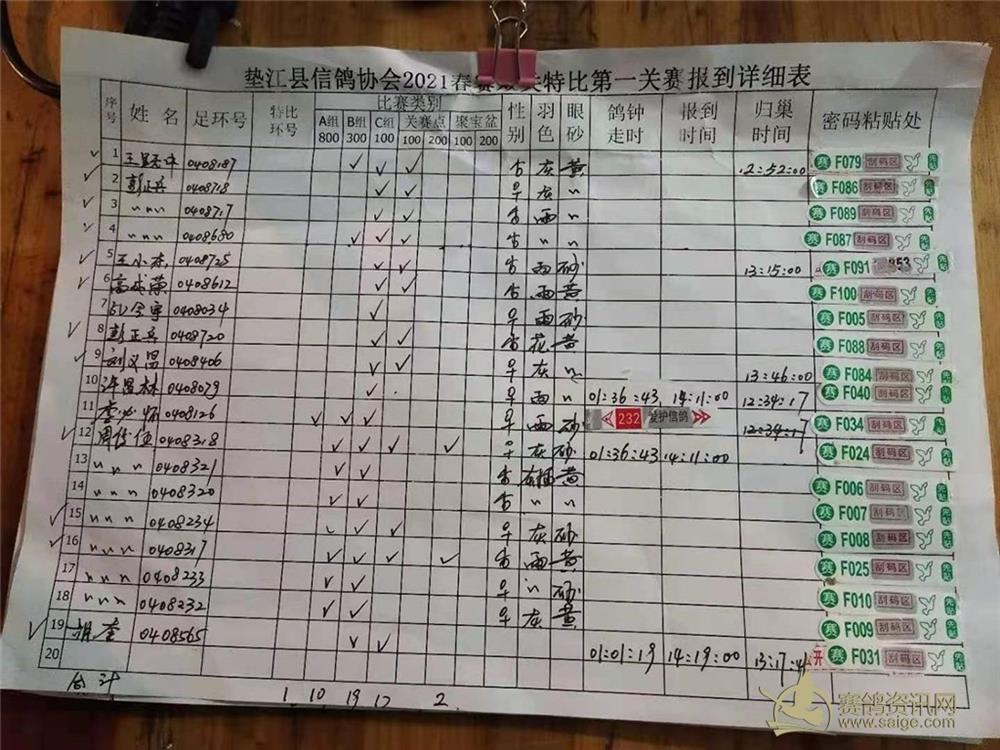 垫江县信鸽协会2021春赛 特比第一关赛报到详细表
序号 姓名 足环号 特比环号 比赛类别 性别 羽色 眼砂 鸽钟走时 报到时间 归巢时间 密码粘贴处
A组 B组 C组 关赛点 聚宝盆
800 300 100 100 200 100 200
1 0408187 ✓ ✓ ✓ 灰 黄 12:52:00 赛 F079 刮码区
2 彭正兵 0408718 ✓ ✓ 灰 〃 赛 F086 刮码区
3 〃〃〃 0408717 ✓ ✓ 雨 〃 赛 F089 刮码区
4 〃〃〃 0408680 ✓ ✓ ✓ 〃 〃 赛 F087 刮码区
5 王小 0408725 ✓ ✓ 雨 砂 13:15:00 赛 F091
6 0408612 ✓ ✓ 雨 黄 赛 F100 刮码区
7 0408034 ✓ 雨 砂 赛 F005 刮码区
8 彭正兵 0408720 ✓ ✓ 花 黄 赛 F088 刮码区
9 刘义昌 0408406 ✓ ✓ 灰 〃 13:46:00 赛 F084 刮码区
10 0408079 ✓ 雨 〃 01:36:43 14:11:00 12:34:17 赛 F040 刮码区
11 0408126 ✓ ✓ ✓ 雨 砂 232 爱护信鸽 12:34:17 赛 F034 刮码区
12 0408318 ✓ ✓ ✓ ✓ 灰 砂 01:36:43 14:11:00 赛 F024 刮码区
13 〃〃〃 0408321 ✓ ✓ 黄 赛 F006 刮码区
14 〃〃〃 0408320 ✓ ✓ 〃 〃 赛 F007 刮码区
15 〃〃〃 0408234 ✓ ✓ ✓ 灰 砂 赛 F008 刮码区
16 〃〃〃 0408317 ✓ ✓ ✓ ✓ 雨 黄 赛 F025 刮码区
17 〃〃〃 0408233 ✓ ✓ 〃 砂 赛 F010 刮码区
18 〃〃〃 0408232 ✓ ✓ 灰 黄 赛 F009 刮码区
19 0408565 ✓ ✓ 01:01:19 14:19:00 13:17:41 开 赛 F031 刮码区
20
合计 1 10 19 17 2
赛鸽资讯网
www.saige.com